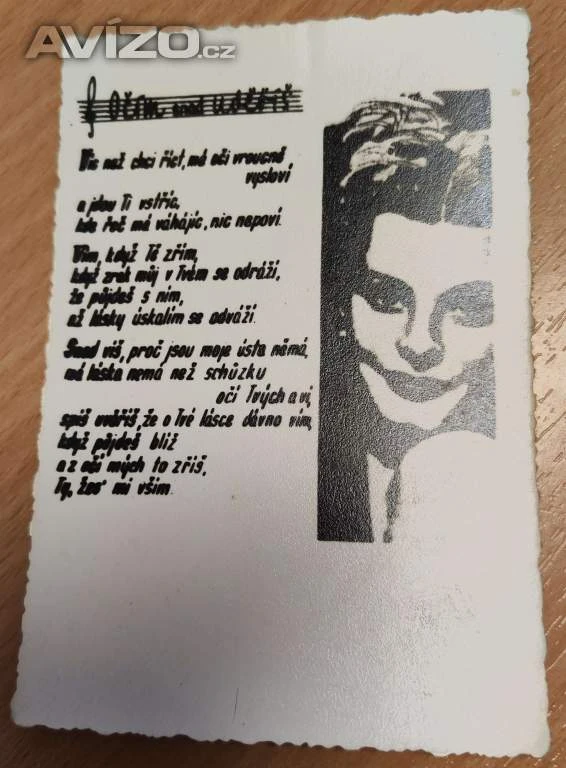 AVÍZO.cz
Očím snad uvěříš
Víc než chci říct, má oči vroucně
vysloví
a jdou Ti vstříc,
kde řeč má váhajíc, nic nepoví.
Vím, když Tě zřím,
když zrak můj v Tvém se odráží,
že půjdeš s ním,
až lásky úskalím se odváží.
Snad víš, proč jsou moje ústa němá,
má láska nemá než schůzku
očí Tvých a
spíš uvěříš, že o Tvé lásce dávno vím,
když půjdeš blíž
a z očí mých to zříš,
Ty, žes' mi vším.